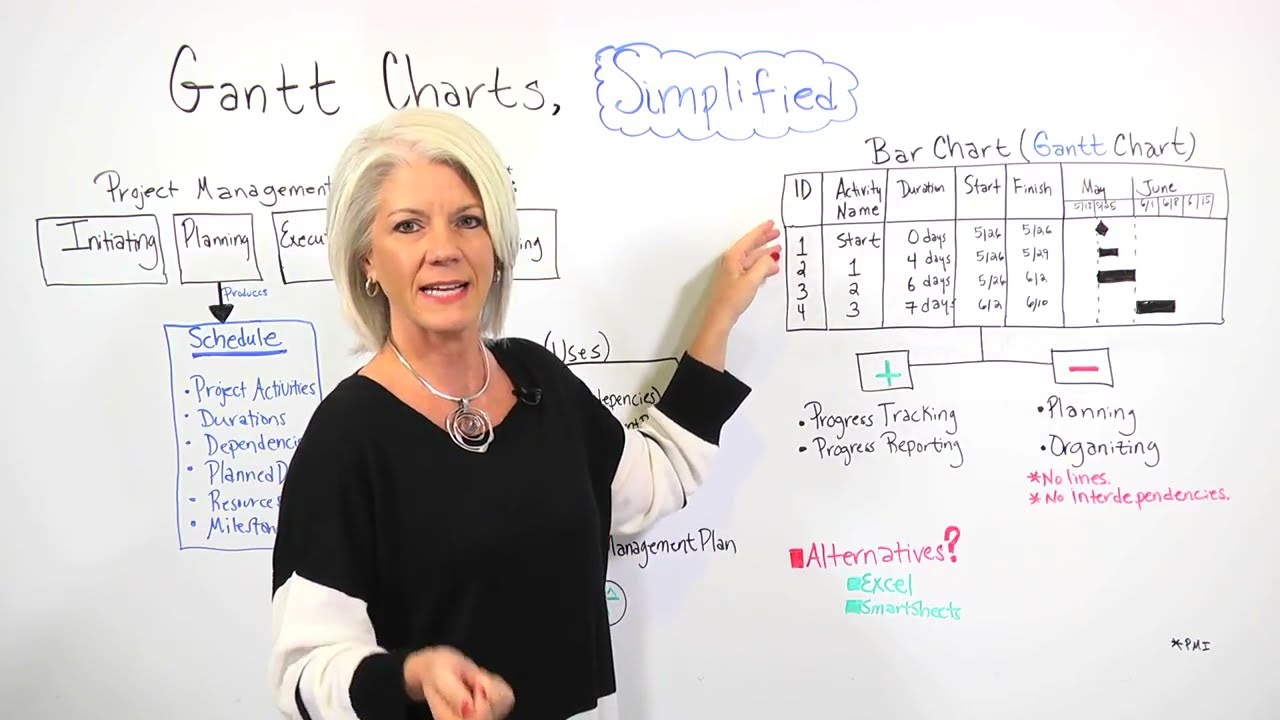 Gantt Charts, Simplified
Project Management
Initiating
Planning
Produces
Schedule
• Project Activities
• Durations
• Dependenci
• Planned D
• Resources
• Mileston
(Uses)
Management Plan
Bar Chart (Gantt Chart)
ID Activity Name Duration Start Finish May June
5/18 5/25 6/1 6/8 6/15
1 Start 0 days 5/26 5/26
2 1 4 days 5/26 5/29
3 2 6 days 5/26 6/2
4 3 7 days 6/2 6/10
+
• Progress Tracking
• Progress Reporting
−
• Planning
• Organizing
*No lines.
*No interdependencies.
Alternatives?
Excel
SmartSheets
*PMI